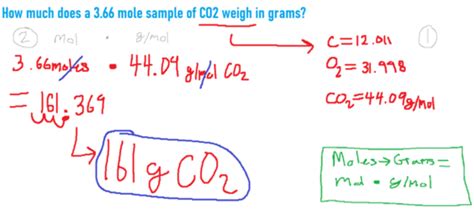 How much does a 3.66 mole sample of CO2 weigh in grams?
2 mol • g/mol 1
C = 12.011
3.66moles • 44.09 g/mol CO2
O2 = 31.998
= 161.369
CO2 = 44.09g/mol
161 g CO2
Moles → Grams =
mol • g/mol